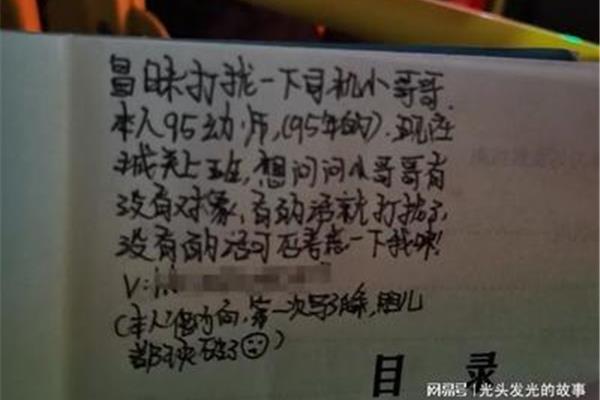 冒昧打扰一下司机小哥哥.
本人95幼师,(95年的).现在
城关上班,想问问小哥哥有
没有对象,有的话就打扰了,
没有的话可否考虑一下我呀!
V:
(本人偏内向,第一次写,胆儿
都快破了)
目 录
搜狐号|光头发光的故事